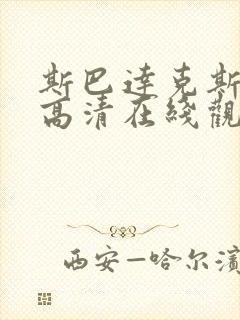 斯巴達克斯
高清在綫觀
西安—哈尔濱